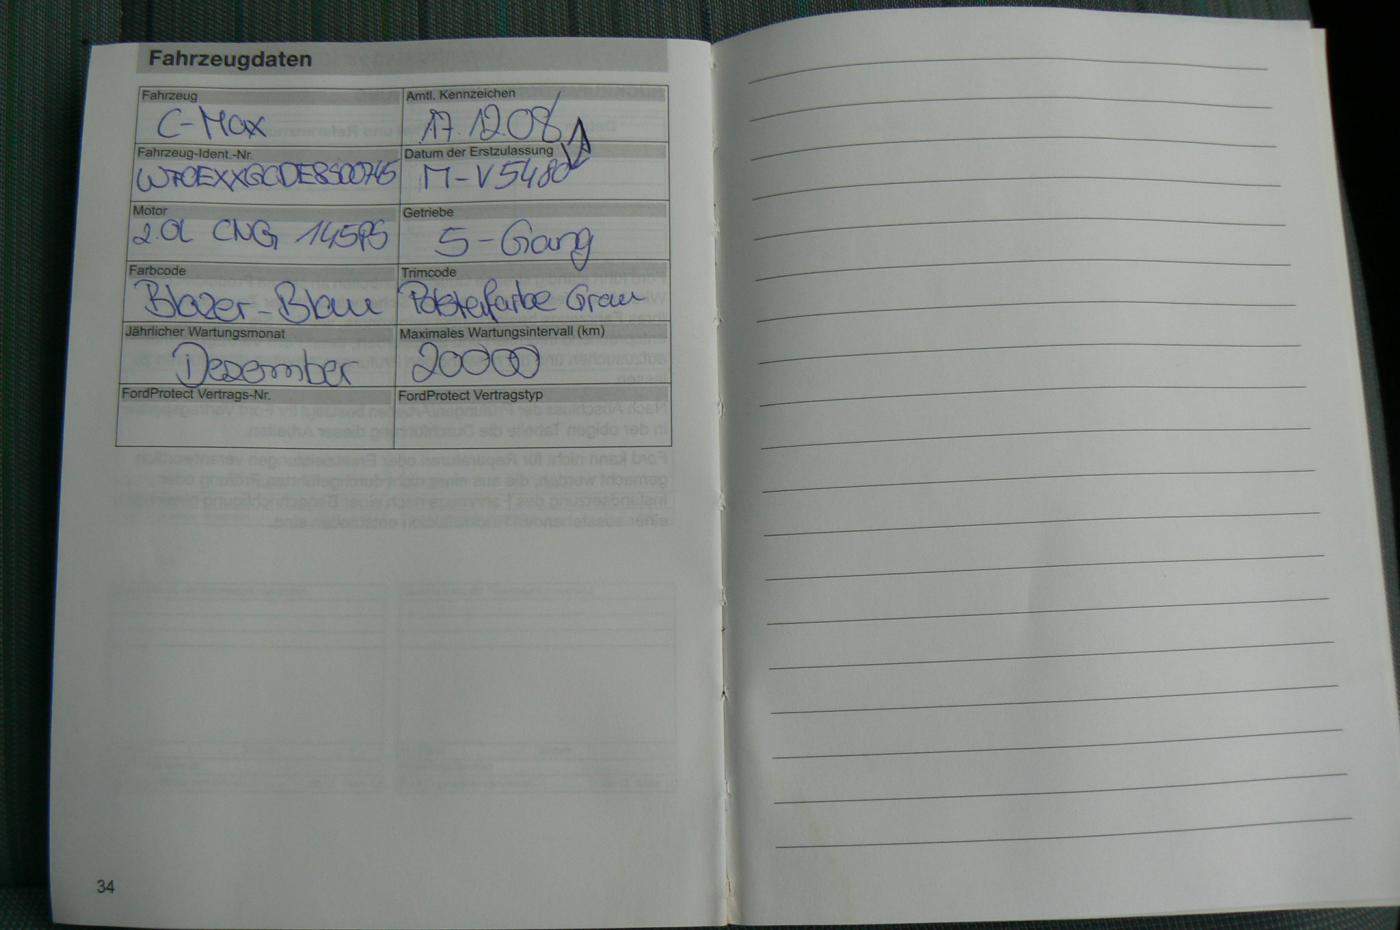 Fahrzeugdaten
Fahrzeug
Amtl. Kennzeichen
C-Max
17 12.08
Fahrzeug-Ident.-Nr.
Datum der Erstzulassung
M-V5480
Motor
Getriebe
2.0L CNG 145PS
5-Gang
Farbcode
Trimcode
Blazer-Blau
Polsterfarbe Grau
Jährlicher Wartungsmonat
Maximales Wartungsintervall (km)
Dezember
20000
FordProtect Vertrags-Nr.
FordProtect Vertragstyp
34